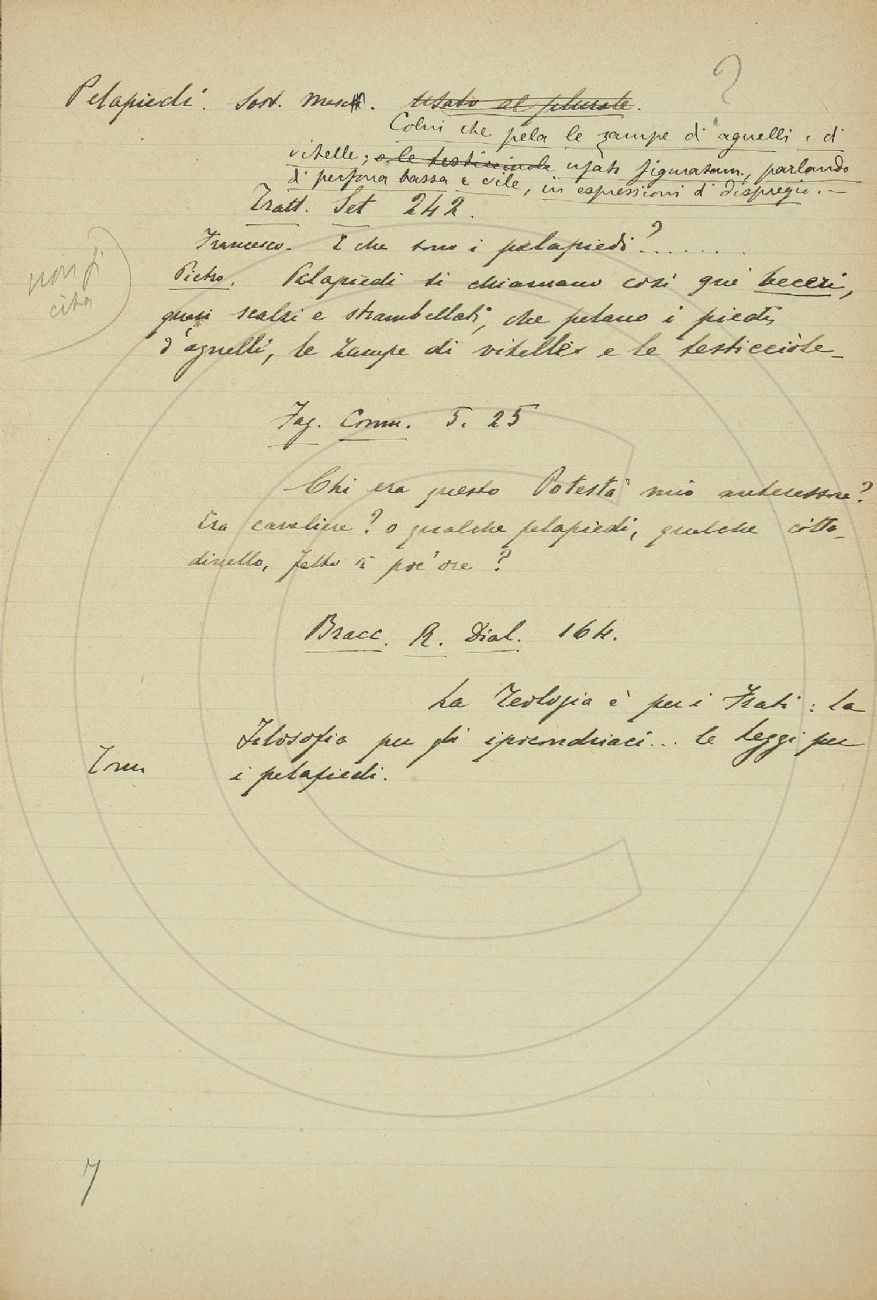 ?
Pelapiedi. Sost. masc. usato al plurale.
Colui che pela le zampe d'agnelli e di
vitelle; o le testicciuole usato figuratam., parlando
di persona bassa e vile, in espressioni di dispregio. —
Tratt. Set 242.
Francesco. E che sono i pelapiedi? ......
non si
cita
Pietro. Pelapiedi si chiamano così que' beceri,
quasi scalzi e strambellati, che pelano i piedi
d'agnelli, le zampe di vitelle e le testicciòle_
Fag. Comm. 5. 25
Chi era questo Potestà mio antecessore?
Era cavaliere? o qualche pelapiedi, qualche citta_
dinello, fatto a poc'ore?
Bracc. R. Dial. 164.
La Teologia è per i Frati: la
Filosofia per gli ipocondriaci... le leggi per
i pelapiedi.
7